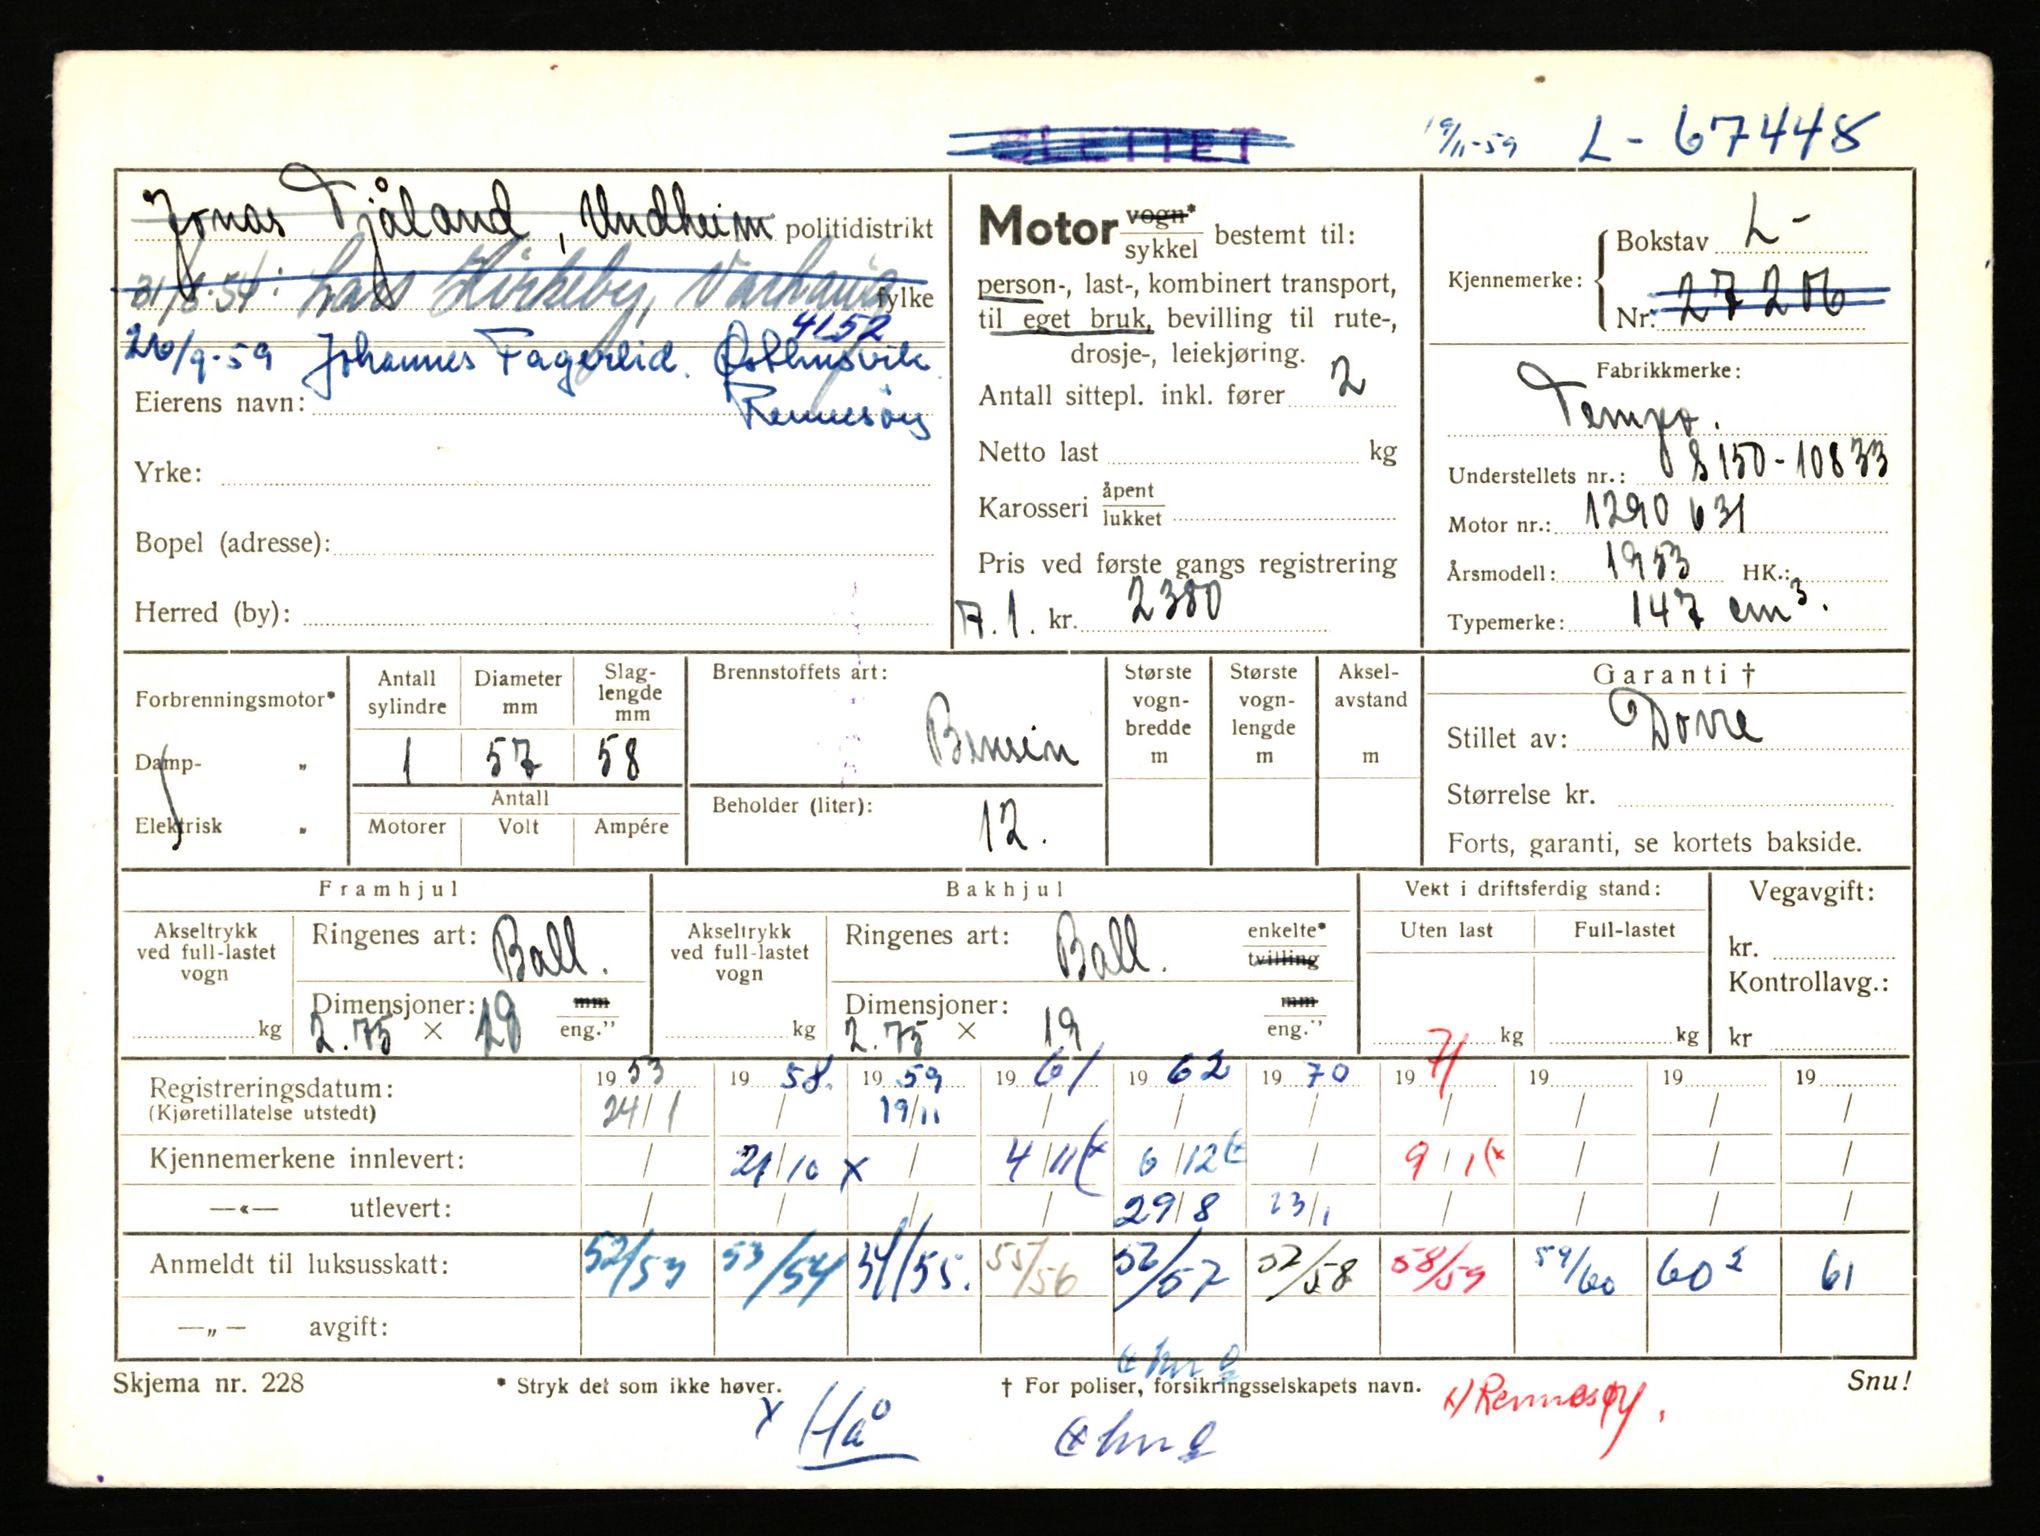 SLETTET 19/11-59 L - 67448
Jonas Tjåland, Undheim politidistrikt
31/8.54: Lars Hirkeby, Varhaug fylke
4152
26/9-59 Johannes Fagerlid. Østhusvik.
Eierens navn: Rennesøy
Yrke:
Bopel (adresse):
Herred (by):
Motor vogn*
sykkel bestemt til:
person-, last-, kombinert transport,
til eget bruk, bevilling til rute-,
drosje-, leiekjøring.
Antall sittepl. inkl. fører 2
Netto last kg
Karosseri åpent
lukket
Pris ved første gangs registrering
A.1. kr. 2380
Kjennemerke: Bokstav L-
Nr. 27206
Fabrikkmerke:
Tempo.
Understellets nr.: S150-10833
Motor nr.: 1290 631
Årsmodell: 1953 HK.:
Typemerke: 147 cm³.
Forbrenningsmotor*
Damp- „
Elektrisk „
Antall sylindre 1
Diameter mm 57
Slag-lengde mm 58
Antall
Motorer Volt Ampére
Brennstoffets art:
Bensin
Beholder (liter): 12.
Største vogn-bredde m
Største vogn-lengde m
Aksel-avstand m
Garanti †
Stillet av: Dovre
Størrelse kr.
Forts, garanti, se kortets bakside.
Framhjul
Akseltrykk ved full-lastet vogn
kg
Ringenes art: Ball.
Dimensjoner: mm
2.75 × 19 eng."
Bakhjul
Akseltrykk ved full-lastet vogn
kg
Ringenes art: Ball. enkelte*
tvilling
Dimensjoner: mm
2.75 × 19 eng."
Vekt i driftsferdig stand:
Uten last Full-lastet
kg kg
Vegavgift:
kr.
Kontrollavg.:
kr
Registreringsdatum: 1953 1958. 1959 1961 1962 1970 1971 19 19 19
(Kjøretillatelse utstedt) 24/1 / 19/11 / / / / / / /
Kjennemerkene innlevert: / 21/10 x / 4/11 (x 6/12 (x / 9/1 (x / / /
—«— utlevert: / / / / 29/8 23/1 / / / /
Anmeldt til luksusskatt: 52/53 53/54 54/55. 55/56 52/57 52/58 58/59 59/60 60² 61
—„— avgift:
Skjema nr. 228 * Stryk det som ikke høver. † For poliser, forsikringsselskapets navn. Snu!
x Hå
x) Rennesøy.